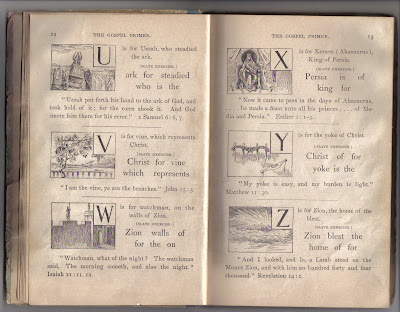 12 THE GOSPEL PRIMER.
U
is for Uzzah, who steadied
the ark.
(SLATE EXERCISE.)
ark for steadied
who is the
"Uzzah put forth his hand to the ark of God, and
took hold of it; for the oxen shook it. And God
smote him there for his error." 2 Samuel 6:6, 7.
V
is for vine, which represents
Christ.
(SLATE EXERCISE.)
Christ for vine
which represents
"I am the vine, ye are the branches." John 15:5.
W
is for watchman, on the
walls of Zion.
(SLATE EXERCISE.)
Zion walls of
for the on
"Watchman, what of the night? The watchman
said, The morning cometh, and also the night."
Isaiah 21:11, 12.
THE GOSPEL PRIMER. 13
X
is for Xerxes (Ahasuerus),
King of Persia.
(SLATE EXERCISE.)
Persia is of
king for
"Now it came to pass in the days of Ahasuerus,
. . . he made a feast unto all his princes . . . of Me-
dia and Persia." Esther 1:1-3.
Y
is for the yoke of Christ.
(SLATE EXERCISE.)
Christ of for
yoke is the
"My yoke is easy, and my burden is light."
Matthew 11:30.
Z
is for Zion, the home of the
blest.
(SLATE EXERCISE.)
Zion blest the
home of for
"And I looked, and lo, a Lamb stood on the
Mount Zion, and with him an hundred forty and four
thousand." Revelation 14:1.